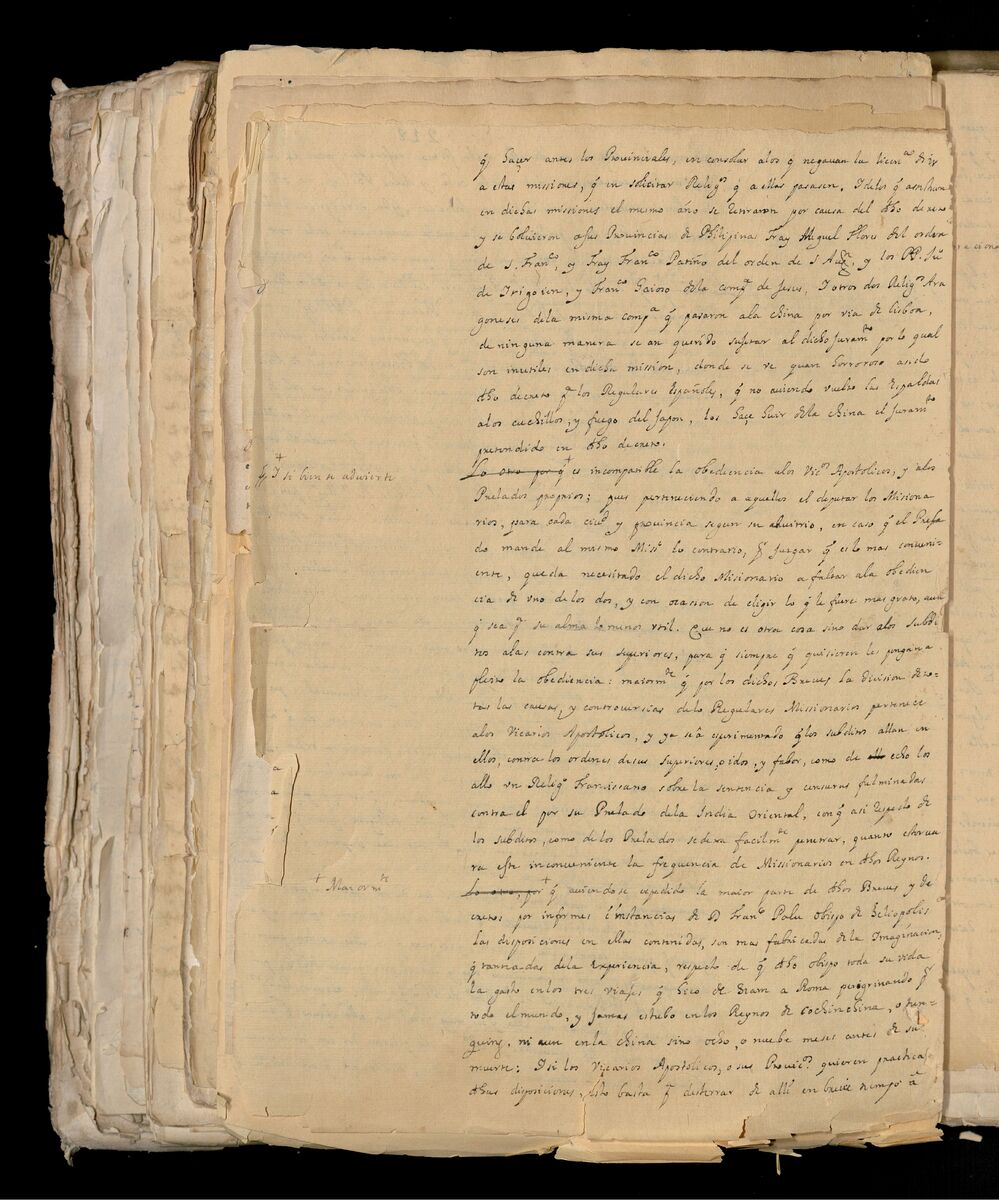 q̃ haçer antes los Provinciales, en consolar alos q̃ negauan la licen.ᶜⁱᵃ de ir
a estas missiones, q̃ en solicitar Relig.ˢ q̃ a ellas pasasen. I delos q̃ asistian
en dichas missiones el mesmo año se retiraron por causa del dho decreto
y se boluieron asus Provincias de Philipinas Fray Miguel Flores del orden
de S. Fran.ᶜᵒ, y Fray Fran.ᶜᵒ Patiño del orden de S. Aug.ⁿ, y los PP. Ju.
de Irigoien, y Fran.ᶜᵒ Gaioso dela comp.ᵃ de Jesus. I otros dos Relig.ˢ Ara
goneses dela misma comp.ᵃ q̃ pasaron ala china por via de lisboa,
de ninguna manera se an querido sujetar al dicho Juram.ᵗᵒ por lo qual
son inutiles en dicha mission, donde se ve quan horroroso asido
dho decreto p.ᵃ los Regulares Españoles, q̃ no auiendo vuelto las Espaldas
alos cuchillos, y fuego del Japon, los haçe huir dela china el Juram.ᵗᵒ
pretendido en dho decreto.
+ I si bien se advierte
Lo otro por q̃ + es incompatible la obediencia alos Vic.ˢ Apostolicos, y alos
Prelados proprios; pues perteneciendo a aquellos el deputar los Misiona
rios, para cada ciu.ᵈ y provincia segun su aluitrio, en caso q̃ el Prela
do mande al mismo Mis.º lo contrario, p.ʳ Juzgar q̃ es lo mas conueni-
ente, queda necesitado el dicho Misionario a faltar ala obedien
cia de vno de los dos, y con ocasion de eligir lo q̃ le fuere mas grato, aun
q̃ sea p.ᵃ su alma lo menos vtil. Que no es otra cosa sino dar alos subdi
tos alas contra sus superiores, para q̃ siempre q̃ quisieren les pongan a
pleito la obediencia: maiorm.ᵗᵉ q̃ por los dichos Breves la division de to-
das las causas, y controversias delo Regulares Missionarios pertenece
alos Vicarios Apostolicos, y ya se â esperimentado q̃ los subditos allan en
ellos, contra los ordenes de sus superiores, oidos, y fabor, como de echo los
allo vn Relig.º Franciscano sobre la sentencia y censuras fulminadas
contra el por su Prelado dela India Oriental, con q̃ asi respeto de
los subditos, como de los Prelados se dexa facilm.ᵗᵉ penetrar, quanto estorua
ra este inconueniente la frequencia de Missionarios en dhos Reynos.
+ Maiorm.ᵗᵉ
Lo otro, por + q̃ auiendose expedido la maior parte de dhos Breues y de
cretos por informes e instancias de D. Fran.ᶜᵒ Palu Obispo de Heliopolis
las disposiciones en ellas contenidas, son mas fabricadas de la Imaginacion,
q̃ dela Experiencia, respecto de q̃ dho obispo toda su vida
la gasto en los tres viajes q̃ hiço de Siam a Roma peregrinando p.ʳ
todo el mundo, y Jamas estubo en los Reynos de cochinchina, o tun-
quing, ni aun en la china sino ocho, o nuebe meses antes de su
muerte; I si los Vicarios Apostolicos, o sus Provic.ˢ quieren practicar
dhas disposiciones, esto basta p.ᵃ desterrar de alli en breue tiempo a